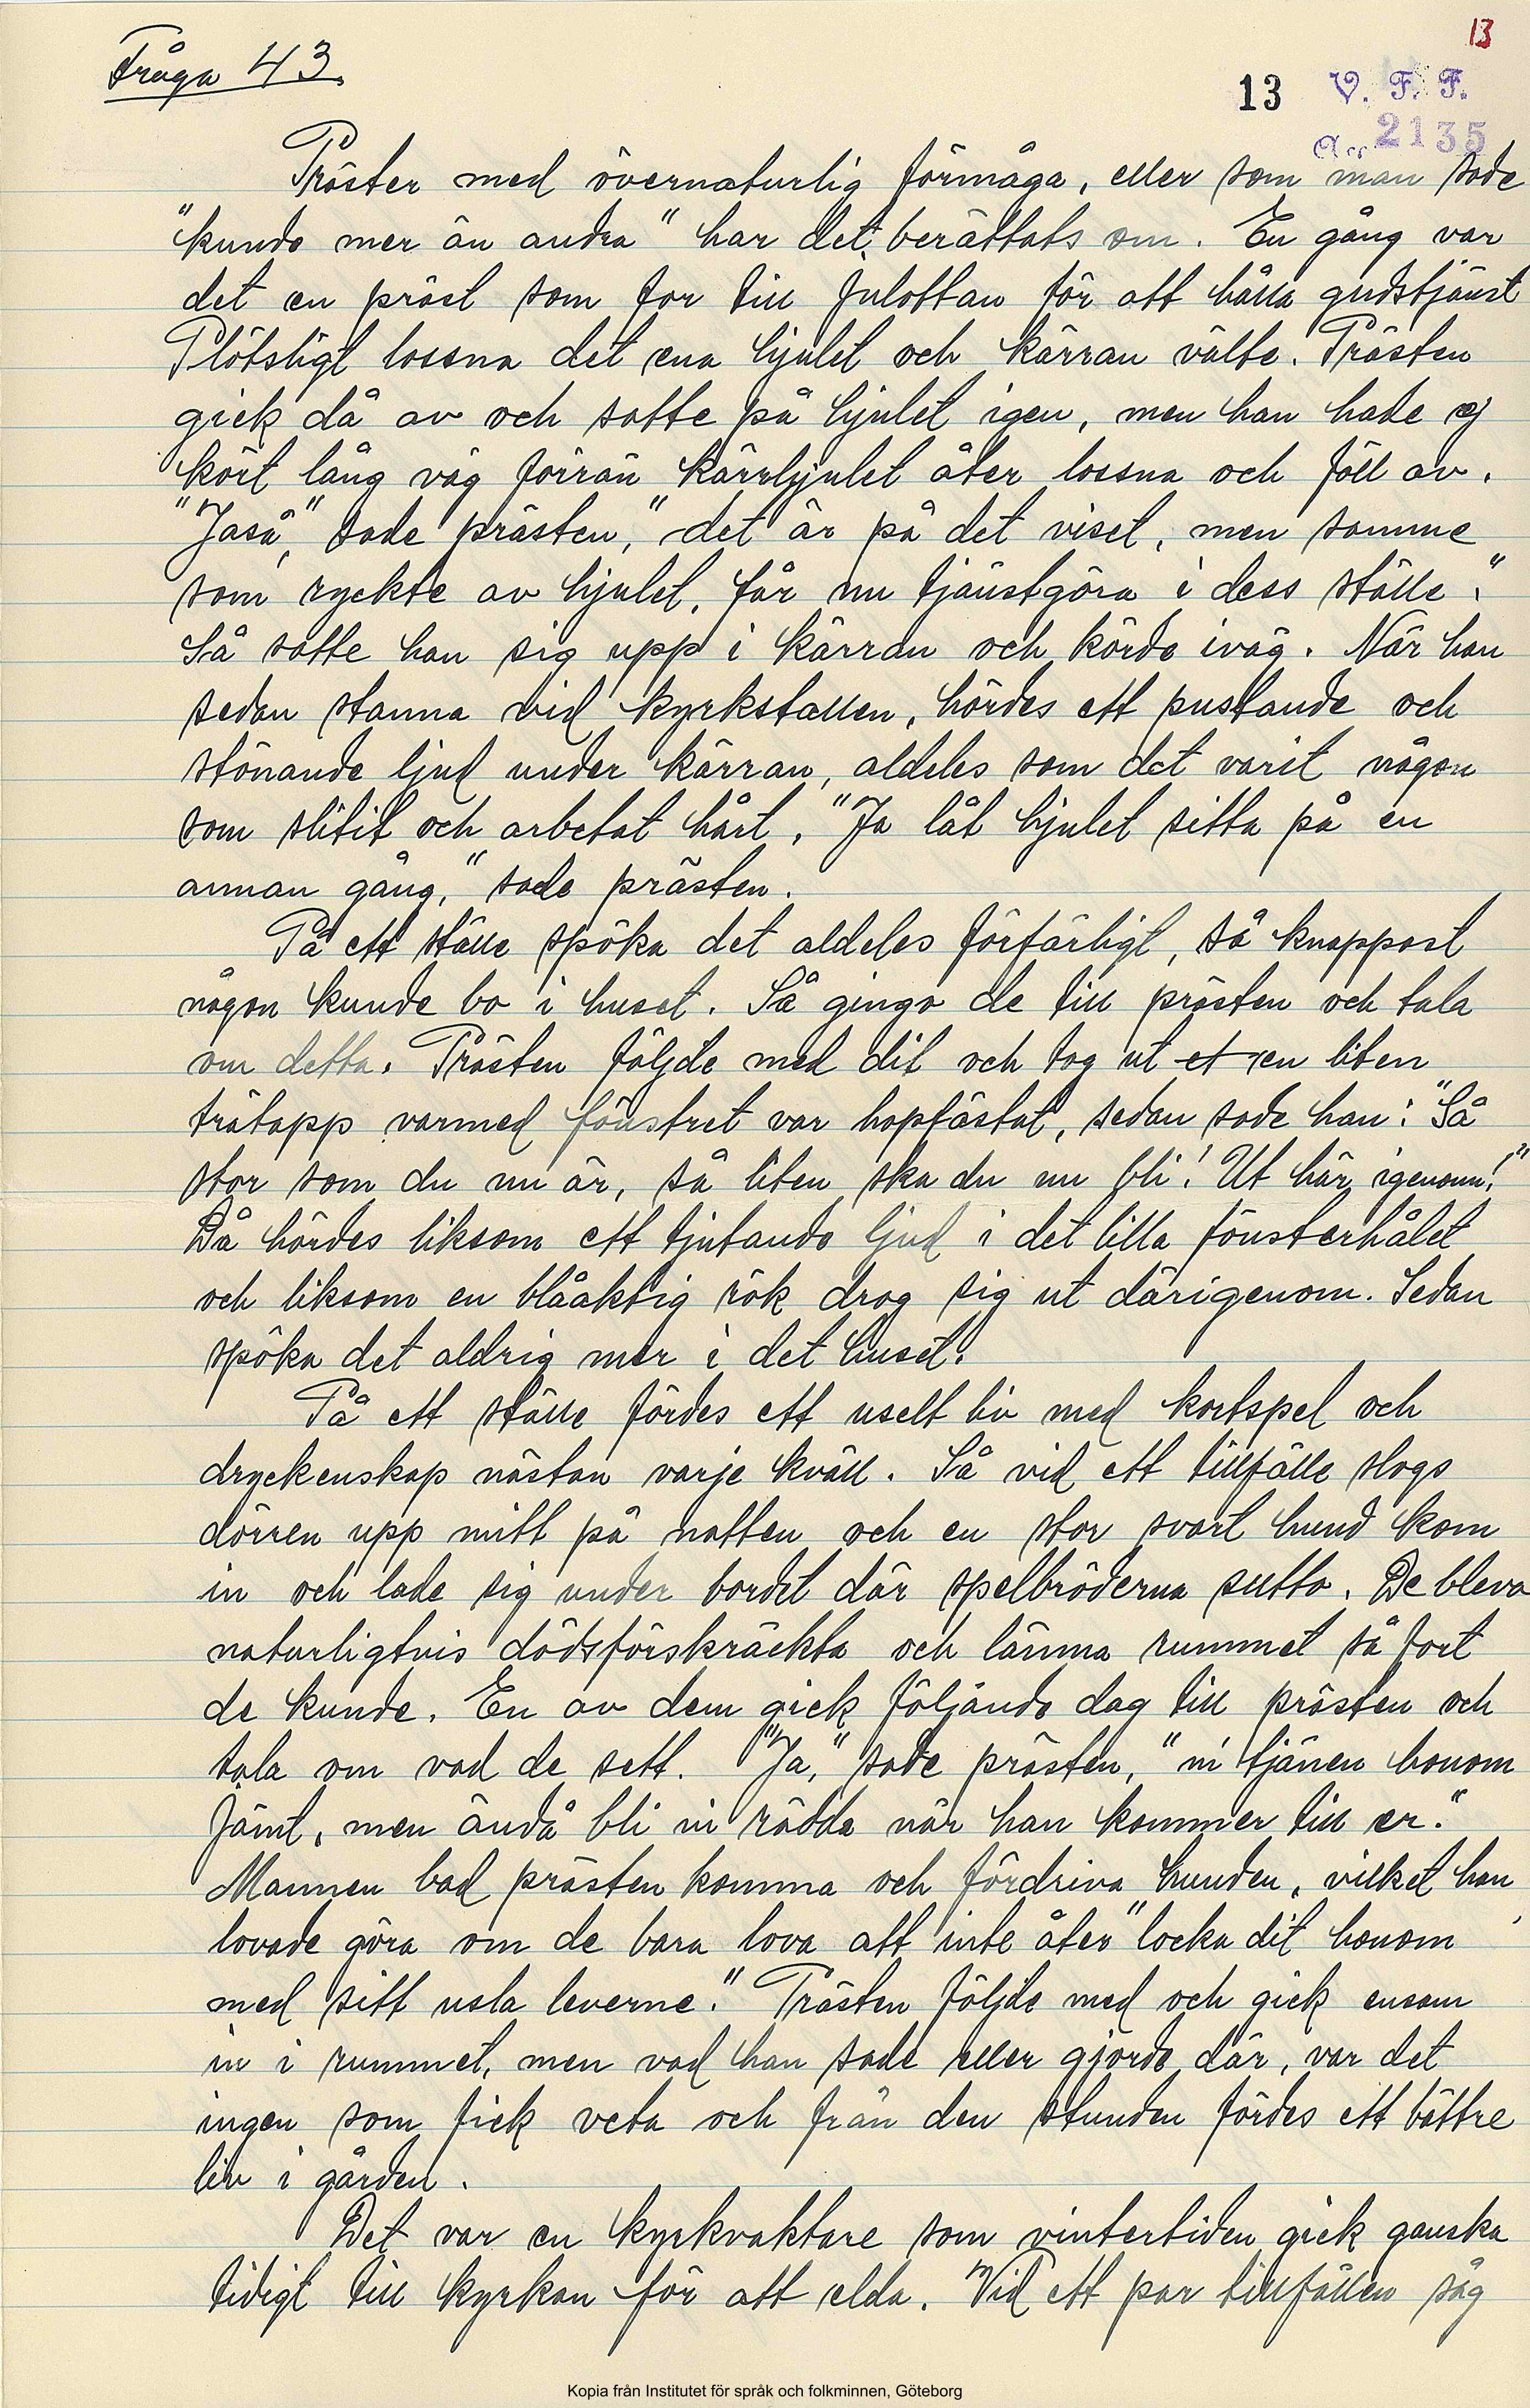 13
Fråga 43.
13 V. F. F.
Acc 2135
Präster med övernaturlig förmåga, eller som man sade
"kunde mer än andra" har det berättats om. En gång var
det en präst som for till julottan för att hålla gudstjänst
Plötsligt lossna det ena hjulet och kärran välte. Prästen
gick då av och satte på hjulet igen, men han hade ej
kört lång väg förrän kärrhjulet åter lossna och föll av.
"Jaså," sade prästen, "det är på det viset, men samme
som ryckte av hjulet, får nu tjänstgöra i dess ställe."
Så satte han sig upp i kärran och körde iväg. När han
sedan stanna vid kyrkstallen, hördes ett pustande och
stönande ljud under kärran, aldeles som det varit någon
som slitit och arbetat hårt. "Ja låt hjulet sitta på en
annan gång," sade prästen.
På ett ställe spöka det aldeles förfärligt, så knappast
någon kunde bo i huset. Så gingo de till prästen och tala
om detta. Prästen följde med dit och tog ut et en liten
trätapp varmed fönstret var hopfästat, sedan sade han: "Så
stor som du nu är, så liten ska du nu bli! Ut här igenom!"
Då hördes liksom ett tjutande ljud i det lilla fönsterhålet
och liksom en blåaktig rök drog sig ut därigenom. Sedan
spöka det aldrig mer i det huset.
På ett ställe fördes ett uselt liv med kortspel och
dryckenskap nästan varje kväll. Så vid ett tillfälle slogs
dörren upp mitt på natten och en stor svart hund kom
in och lade sig under bordet där spelbröderna sutto. De blevo
naturligtvis dödsförskräckta och lämna rummet så fort
de kunde. En av dem gick följande dag till prästen och
tala om vad de sett. "Ja," sade prästen, "ni tjänen honom
jämt, men ändå bli ni rädda när han kommer till er."
Mannen bad prästen komma och fördriva hunden, vilket han
lovade göra om de bara lova att inte åter "locka dit honom
med sitt usla leverne." Prästen följde med och gick ensam
in i rummet, men vad han sade eller gjorde där, var det
ingen som fick veta och från den stunden fördes ett bättre
liv i gården.
Det var en kyrkvaktare som vintertiden gick ganska
tidigt till kyrkan för att elda. Vid ett par tillfällen såg
Kopia från Institutet för språk och folkminnen, Göteborg